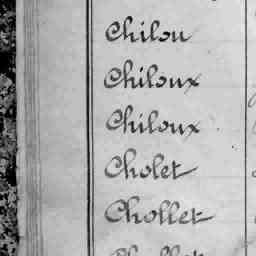 Chilou
Chiloux
Chiloux
Cholet
Chollet
Chollet